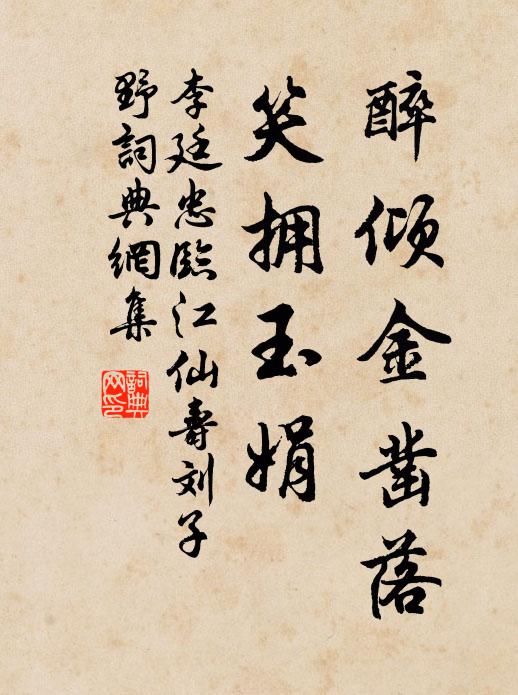 醉倾金凿落
笑拥玉娟
李廷忠臨江仙壽刘子
野詞典網集
詞典
网印